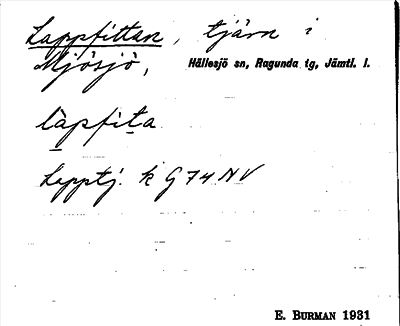 Lappfittan, tjärn i
Mjösjö, Hällesjö sn, Ragunda tg, Jämtl. l.
làpfita
Lapptj. k G 74 NV
E. BURMAN 1931